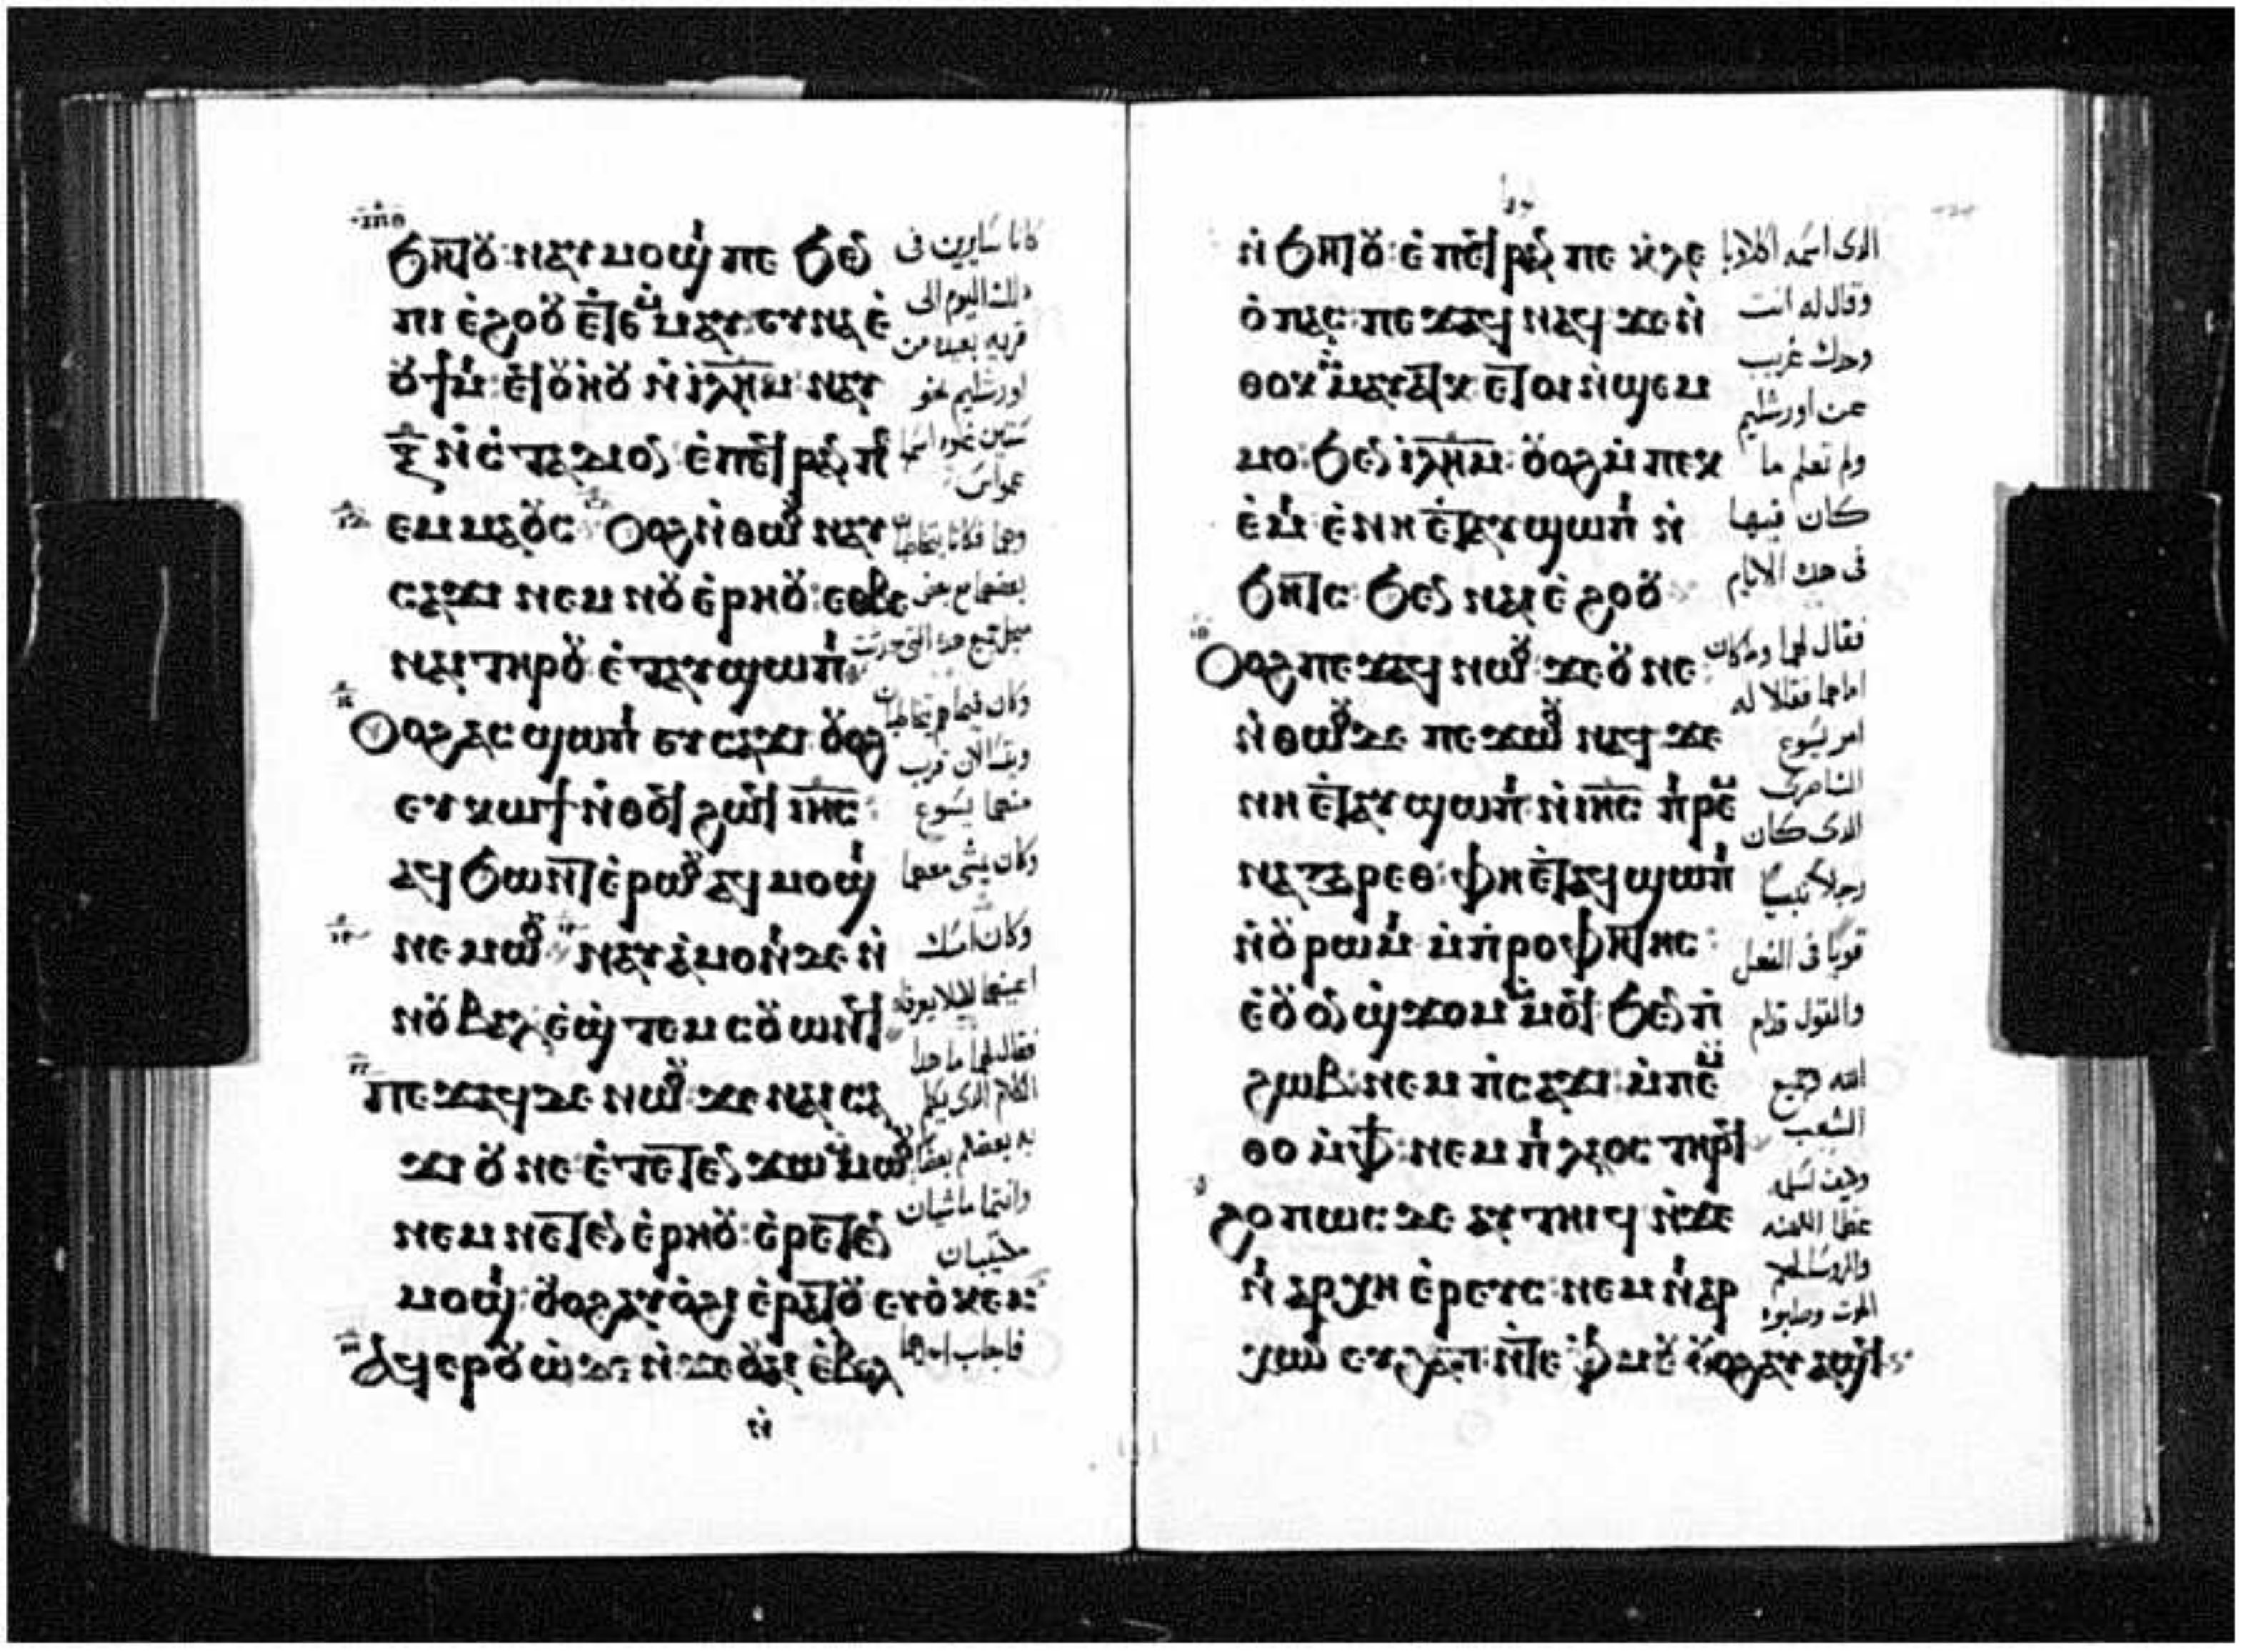 ϧⲏⲧⲟⲩ: ⲛⲁⲩⲙⲟϣⲓ ⲡⲉ ϧⲉⲛ
ⲡⲓ ⲉ̀ϩⲟⲟⲩ ⲉ̀ⲧⲉⲙⲙⲁⲩ ⲉⲩⲛⲁ ⲉ̀
ⲟⲩϯⲙⲓ ⲉ̀ⲧⲟⲩⲏⲟⲩ ⲛ̀ⲓⲗⲏⲙ ⲛⲁⲩ
ⲝ̄ ⲛ̀ⲥ̀ⲧⲁⲇⲓⲟⲛ ⲉ̀ⲡⲉϥⲣⲁⲛ ⲡⲉ
ⲉⲙⲙⲁⲟⲩⲥ Ⲟⲩⲟϩ ⲛ̀ⲑⲱⲟⲩ ⲛⲁⲩ
ⲥⲁϫⲓ ⲛⲉⲙ ⲛⲟⲩ ⲉ̀ⲣⲏⲟⲩ: ⲉⲑⲃⲉ
ⲛⲁⲓ ⲧⲏⲣⲟⲩ ⲉ̀ⲧⲁⲩϣⲱⲡⲓ
Ⲟⲩⲟϩ ⲁⲥϣⲱⲡⲓ ⲉⲩⲥⲁϫⲓ ⲟⲩⲟϩ
ⲉⲩⲕⲱϯ ⲛ̀ⲑⲟϥ ϩⲱϥ ⲓⲏⲥ:
ⲁϥϧⲱⲛⲧ ⲉ̀ⲣⲱⲟⲩ ⲁϥⲙⲟϣⲓ
ⲛⲉⲙⲱⲟⲩ ⲛⲁⲩⲁ̀ⲙⲟⲛⲓ ⲇⲉ ⲛ̀
ⲛⲟⲩⲃⲁⲗ ⲉ̀ϣⲧⲉⲙⲥⲟⲩⲱⲛϥ
ⲡⲉϫⲁϥ ⲇⲉ ⲛⲱⲟⲩ ϫⲉ ⲛⲁⲓ ⲥⲁ
ϫⲓ ⲟⲩ ⲛⲉ ⲉ̀ⲧⲉⲧⲉⲛϫⲱ ⲙⲙⲱⲟⲩ
ⲛⲉⲙ ⲛⲉⲧⲉⲛ ⲉ̀ⲣⲏⲟⲩ: ⲉ̀ⲣⲉⲧⲉⲛ
ⲙⲟϣⲓ: ⲟⲩⲟϩ ⲁⲩⲟ̀ϩⲓ ⲉ̀ⲣⲁⲧⲟⲩ ⲉⲩⲟ̀ⲕⲉⲙ:
Ⲁϥⲉⲣⲟⲩⲱ̀ ⲇⲉ ⲛ̀ϫⲉ ⲟⲩⲁⲓ ⲉ̀ⲃⲟⲗ
ⲛ̀
كانا سايرين في
دلك اليوم الى
قريه بعيده من
اورشليم نحو
ستين غلوه اسمها
عمواس
وهما فكانا يتخاطبان
بعضهما مع بعض
وكان فيما هما يتخاطبان
منهما يسوع
وكان يمشي معهما
وكان امسك
فقال لهما ما هدا
الكلام الدى يكلم
به بعضكم بعضًا
وانتما ماشيان
مكتيبان
فاجاب احدهما
ⲛ̀ϧⲏⲧⲟⲩ: ⲉ̀ⲡⲉϥⲣⲁⲛ ⲡⲉ ⲕ̀ⲗⲉ
ⲟ̀ⲡⲁⲥ: ⲡⲉϫⲁϥ ⲛⲁϥ ϫⲉ ⲛ̀
ⲑⲟⲕ ⲙⲙⲁⲩⲁⲧⲕ ⲉ̀ⲧⲟⲓ ⲛ̀ϣⲉⲙ
ⲙⲟ: ϧⲉⲛ ⲓⲗⲏⲙ: ⲟⲩⲟϩ ⲙ̀ⲡⲉⲕ
ⲉ̀ⲙⲓ ⲉ̀ⲛⲏ ⲉ̀ⲧⲁⲩϣⲱⲡⲓ ⲛ̀
ϧⲏⲧⲥ ϧⲉⲛ ⲛⲁⲓ ⲉ̀ϩⲟⲟⲩ
Ⲟⲩⲟϩ ⲡⲉϫⲁϥ ⲛⲱⲟⲩ ϫⲉ ⲟⲩ ⲛⲉ
ⲛ̀ⲑⲱⲟⲩ ⲇⲉ ⲡⲉϫⲱⲟⲩ ⲛⲁϥ ϫⲉ
ⲛⲏ ⲉ̀ⲧⲁⲩϣⲱⲡⲓ ⲛ̀ⲓⲏⲥ ⲡⲓⲣⲉⲙ
ⲛⲁⲍⲁⲣⲉⲑ: ⲫⲏ ⲉ̀ⲧⲁϥϣⲱⲡⲓ
ⲛ̀ⲟⲩⲣⲱⲙⲓ ⲙ̀ⲡ̀ⲣⲟⲫⲏⲧⲏⲥ:
ⲉ̀ⲟⲩⲟⲛ ϣϫⲟⲙ ⲙⲙⲟϥ ϧⲉⲛ ⲡ̀
ϩⲱⲃ: ⲛⲉⲙ ⲡ̀ⲥⲁϫⲓ: ⲙ̀ⲡⲉⲙ
ⲑⲟ ⲙ̀ⲫϯ: ⲛⲉⲙ ⲡⲓⲗⲁⲟⲥ ⲧⲏⲣϥ
ϩⲟⲡⲱⲥ ⲇⲉ ⲁⲩⲧⲏⲓϥ ⲛ̀ϫⲉ
ⲛⲓⲁⲣⲭⲏ ⲉ̀ⲣⲉⲩⲥ: ⲛⲉⲙ ⲛⲓⲁⲣ
ⲭⲱⲛ ⲉⲩϩⲁⲡ: ⲛ̀ⲧⲉ ⲫ̀ⲙⲟⲩ ⲟⲩⲟϩ ⲁⲩⲁϣϥ
الدى اسمه اكلاوبا
وقال له انت
وحدك غريب
عن اورشليم
ولم تعلم ما
كان فيها
فى هده الايام
فقال لهما وما كان
اما هما فقالا له
امر يسوع
الناصرى
الدى كان
رجلاً نبيًا
قويًا فى الفعل
والقول قدام
الله وجميع
الشعب
وكيف اسلمه
عظما الكهنه
والروسا لحكم
الموت وصلبوه